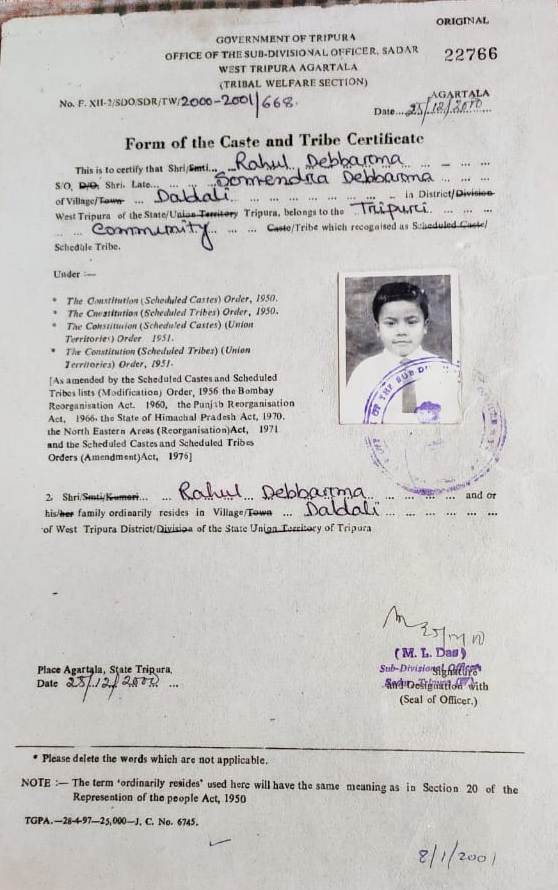 ORIGINAL
GOVERNMENT OF TRIPURA
OFFICE OF THE SUB-DIVISIONAL OFFICER, SADAR
22766
WEST TRIPURA AGARTALA
(TRIBAL WELFARE SECTION)
No. F. XII-2/SDO/SDR/TW/2000-2001/668
AGARTALA
Date...25/12/2000
Form of the Caste and Tribe Certificate
This is to certify that Shri/Smti... Rahul Debbarma ... ... ...
S/O, D/O, Shri. Late... ... ... Somendra Debbarma ... ...
of Village/Town ... Daldali ... ... ... ... ... in District/Division
West Tripura of the State/Union Territory Tripura, belongs to the Tripuri ... ...
... Community ... ... Caste/Tribe which recognised as Scheduled Caste/
Schedule Tribe.
Under :—
* The Constitution (Scheduled Castes) Order, 1950.
* The Constitution (Scheduled Tribes) Order, 1950.
* The Constitution (Scheduled Castes) (Union
Territories) Order 1951.
* The Constitution (Scheduled Tribes) (Union
Territories) Order, 1951.
[As amended by the Scheduled Castes and Scheduled
Tribes lists (Modification) Order, 1956 the Bombay
Reorganisation Act. 1960, the Punjab Reorganisation
Act, 1966, the State of Himachal Pradesh Act, 1970,
the North Eastern Areas (Reorganisation)Act, 1971
and the Scheduled Castes and Scheduled Tribes
Orders (Amendment)Act, 1976]
OF THE SUB DI
2. Shri/Smti/Kumari... ... Rahul Debbarma ... ... ... and or
his/her family ordinarily resides in Village/Town ... Daldali ... ... ... ...
of West Tripura District/Division of the State Union Territory of Tripura
(M. L. Das)
Sub-Divisional Officer
Signature
and Designation with
(Seal of Officer.)
Place Agartala, State Tripura,
Date 25/12/2000 ...
* Please delete the words which are not applicable.
NOTE :— The term 'ordinarily resides' used here will have the same meaning as in Section 20 of the
Represention of the people Act, 1950
TGPA.—28-4-97—25,000—J. C. No. 6745.
8/1/2001